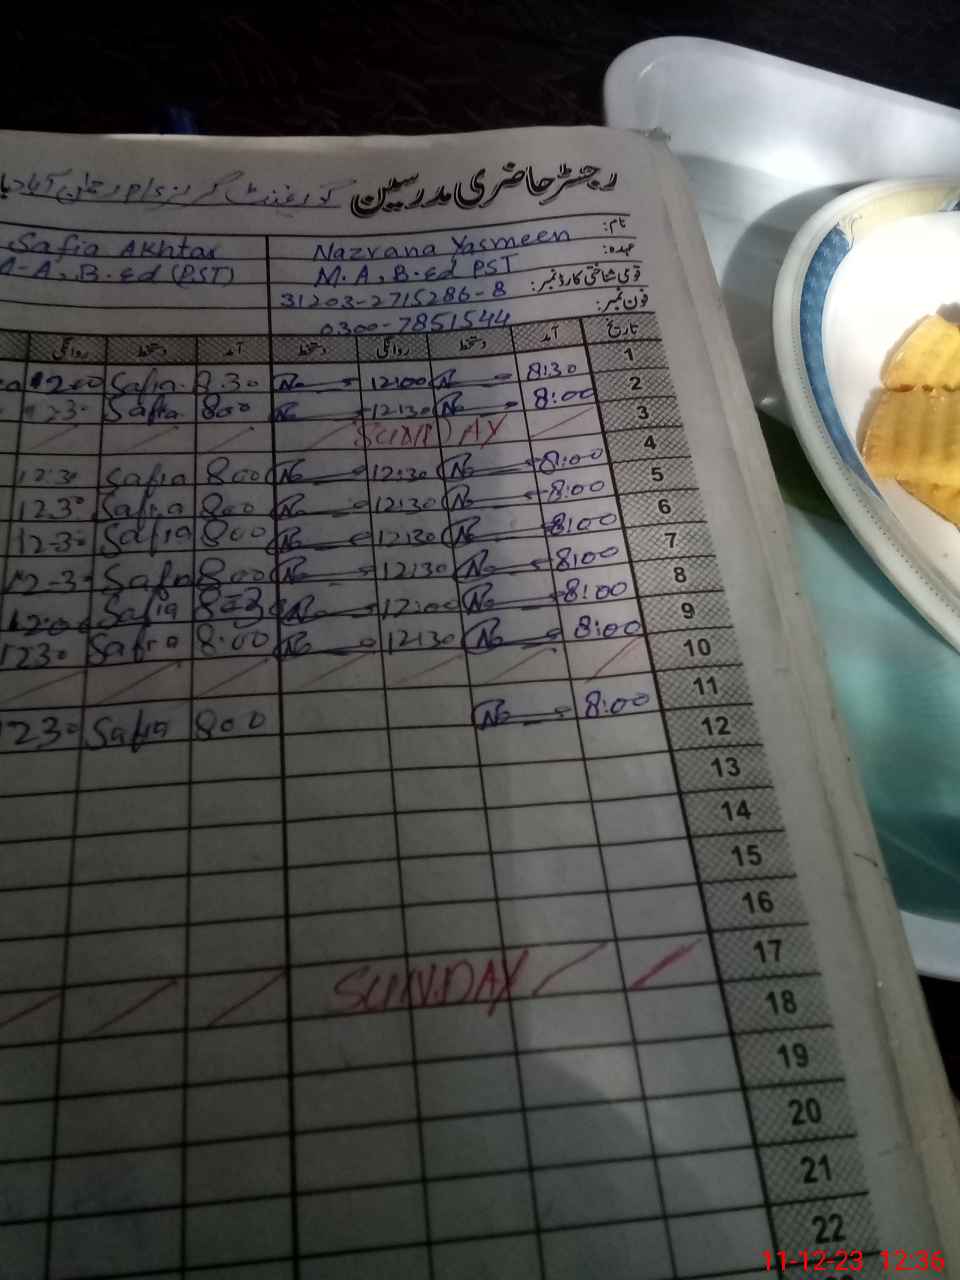 رجسٹر حاضری مدرسین
نام: Nazrana Yasmeen Safia Akhtar
عہدہ: M.A, B.Ed PST A-A, B.Ed (PST)
قومی شناختی کارڈ نمبر: 31203-2715286-8
فون نمبر: 0300-7851544
تاریخ آمد دستخط روانگی دستخط آمد دستخط روانگی
1 8:30 12:00 8.30 Safia 1200
2 8:00 12:30 800 Safia
3 SUNDAY
4 8:00 12:30 800 Safia 12:30
5 8:00 12:30 800 Safia 1230
6 8:00 12:30 800 Safia 12-30
7 8:00 12:30 800 Safia 12-30
8 8:00 12:00 Safia 1200
9 8:00 12:30 8:00 Safia 1230
10
11 8:00 800 Safia 1230
12
13
14
15
16
17 SUNDAY
18
19
20
21
22
11-12-23 12:36